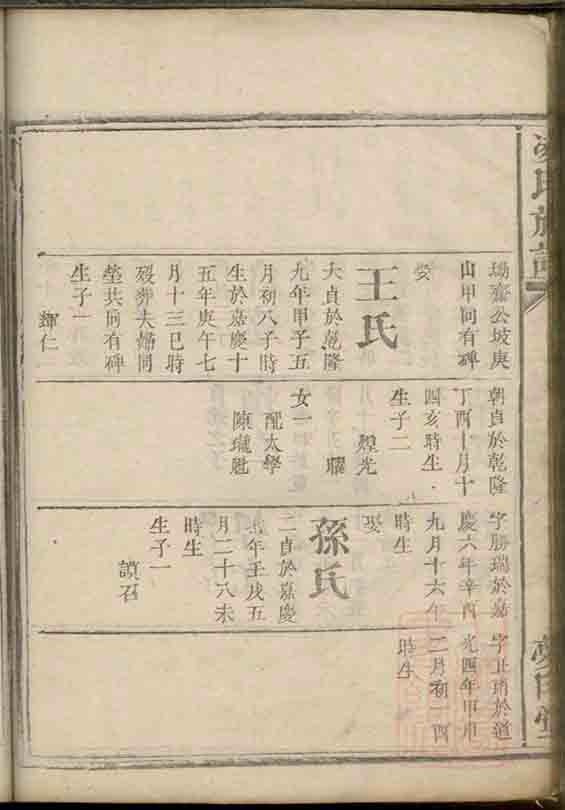 凌氏族譜
塲齋公坡庚
山甲向有碑
娶
王氏
大貞於乾隆
九年甲子五
月初八子時
生於嘉慶十
五年庚午七
月十三巳時
歿葬夫婦同
塋共向有碑
生子一
輝仁
朝貞於乾隆
丁酉十月十
四亥時生
生子二
煌光
耀
女一
配太學
陳瓏魁
字勝瑞於嘉
慶六年辛酉
九月十六午
時生
娶
孫氏
二貞於嘉慶
七年壬戌五
月二十八未
時生
生子一
讚召
於道
光四年甲申
二月初一酉
時生